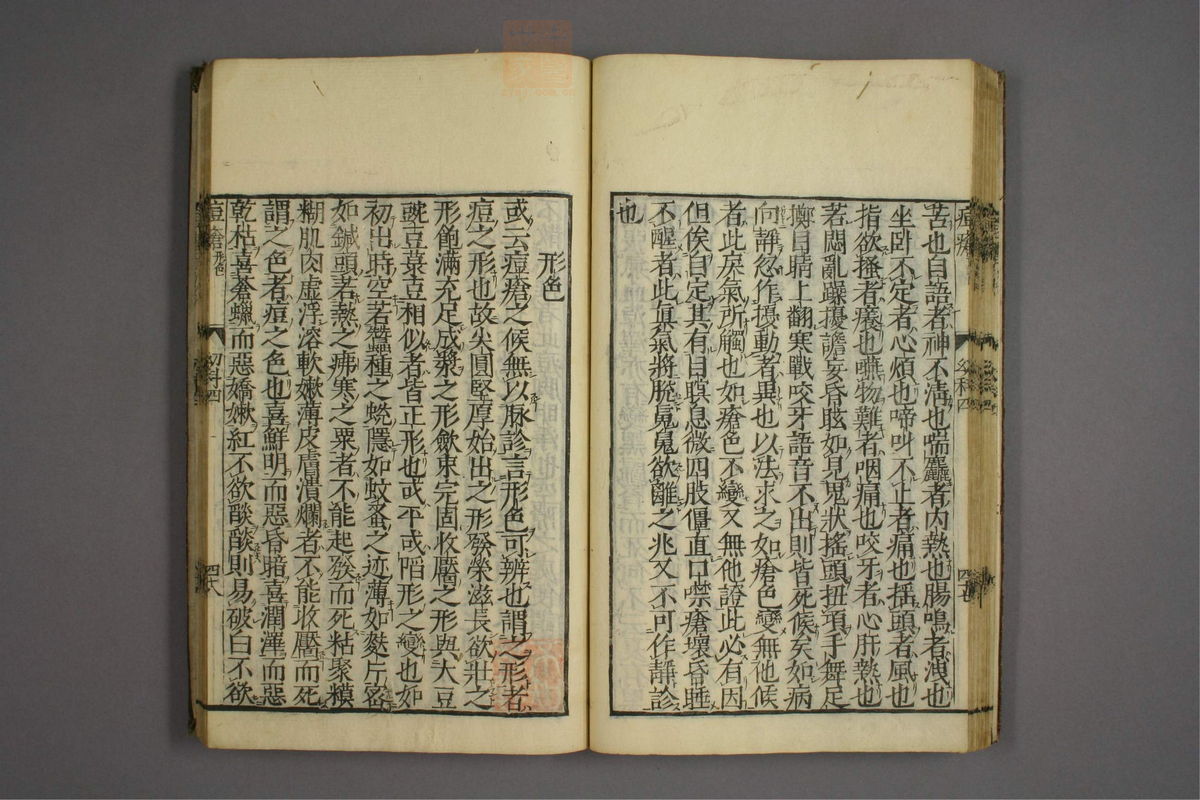 痘瘡
苦也自語者神不清也喘麤者内熱也腸鳴者洩也
坐卧不定者心煩也啼叫不止者痛也揺頭者風也
指欲搔者癢也嚥物難者咽痛也咬牙者心肝熱也
若悶亂躁擾譫妄昏眩如見鬼狀搖頭扭項手舞足
擲目睛上翻寒戰咬牙語音不出則皆死候矣如病
向靜忽作擾動者異也以法求之如瘡色變無他候
者此戾氣所觸也如瘡色不變又無他證此必有因
但俟自定其有目瞑息微四肢僵直口噤瘡壞昏睡
不醒者此眞氣將脫䰟䰟欲離之兆又不可作靜診
也
幼科四
形色
或云痘瘡之候無以脉診言形色可辨也謂之形者
痘之形也故尖圓堅厚始出之形發榮滋長欲壯之
形飽滿充足成漿之形斂束完固收靨之形與大豆
豌豆菉豆相似者皆正形也或平或陷形之變也如
初出時空若蠶種之蛻隱如蚊蚤之迹薄如麩片密
如鍼頭若熱之疿寒之粟者不能起發而死粘聚模
糊肌肉虛浮溶軟嫩薄皮膚潰爛者不能收靨而死
謂之色者痘之色也喜鮮明而惡昏暗喜潤澤而惡
乾枯喜蒼蠟而惡嬌嫩紅不欲燄燄則易破白不欲
痘瘡形色
幼科四
四八